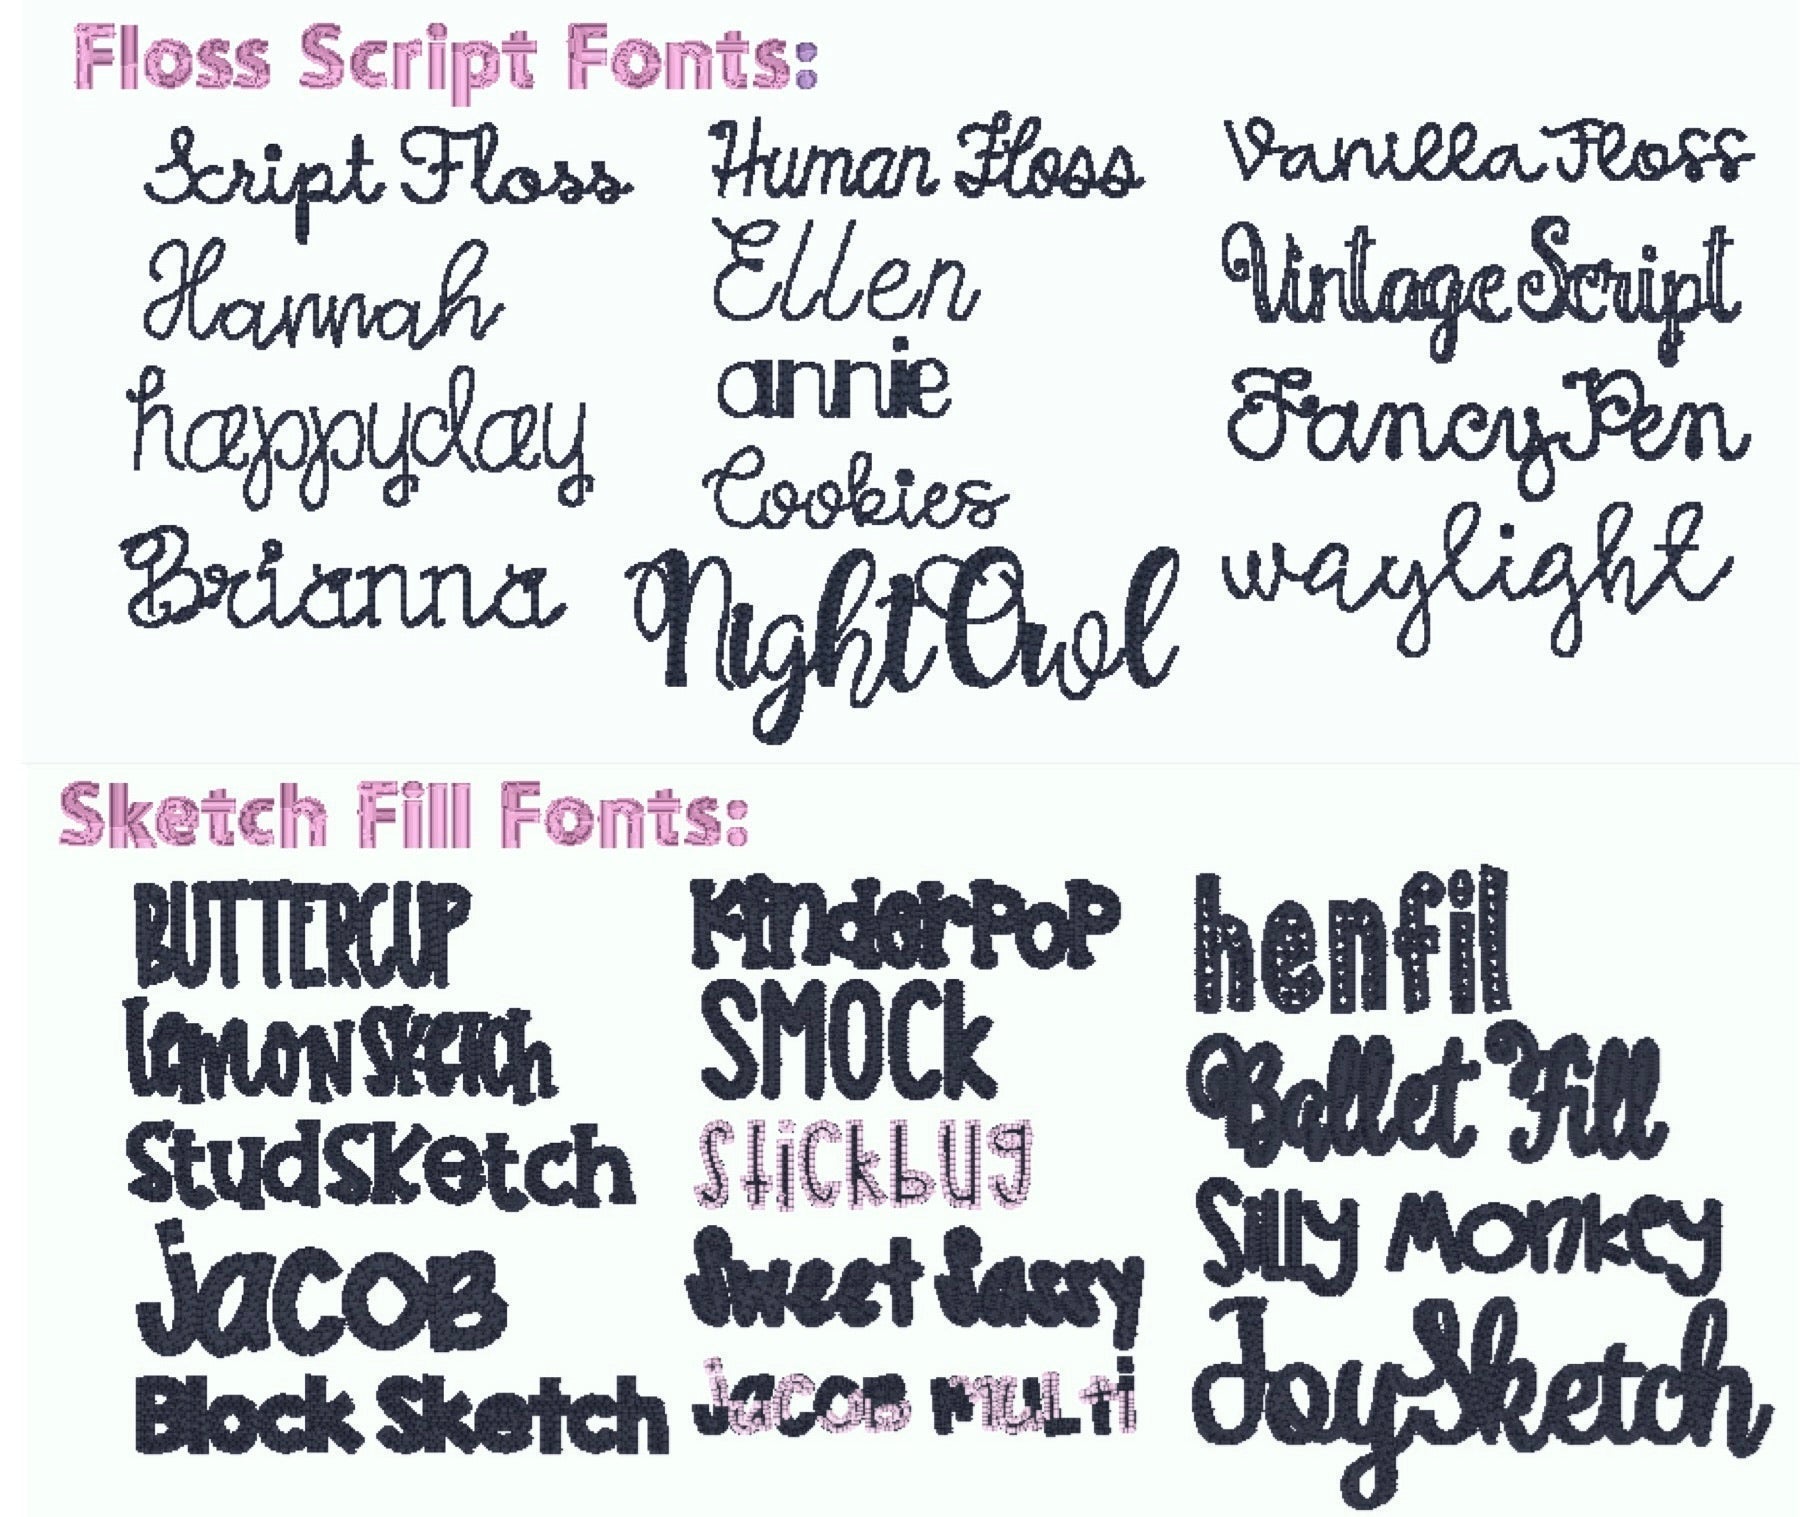 Floss Script Fonts:
Script Floss
Hannah
happyday
Brianna
Human Floss
Ellen
annie
Cookies
Night Owl
Vanilla Floss
Vintage Script
Fancy Pen
waylight
Sketch Fill Fonts:
BUTTERCUP
LemON SKetch
StudSketch
jacOB
Block Sketch
KinderPoP
SMOCk
StiCkbug
Sweet Sassy
jacOB muLti
henfill
Ballet Fill
Silly Monkey
JoySketch